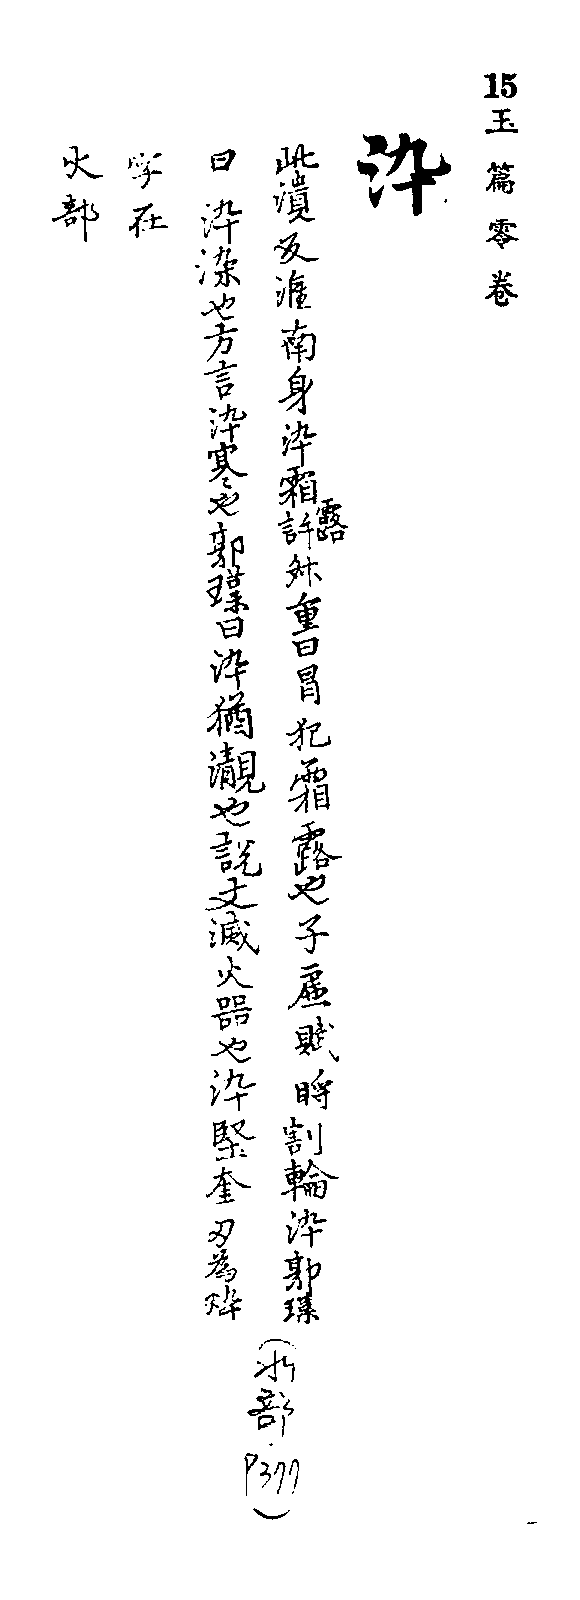 15玉篇零卷
淬
此漬反淮南身淬霜露許𡬶重曰冒犯霜露也子虛賦脟割輪淬郭璞
曰淬染也方言淬寒〻也郭璞曰淬猶瀙也說文滅火器也淬堅䇑刃為焠
字在
火部
(水部·P377)